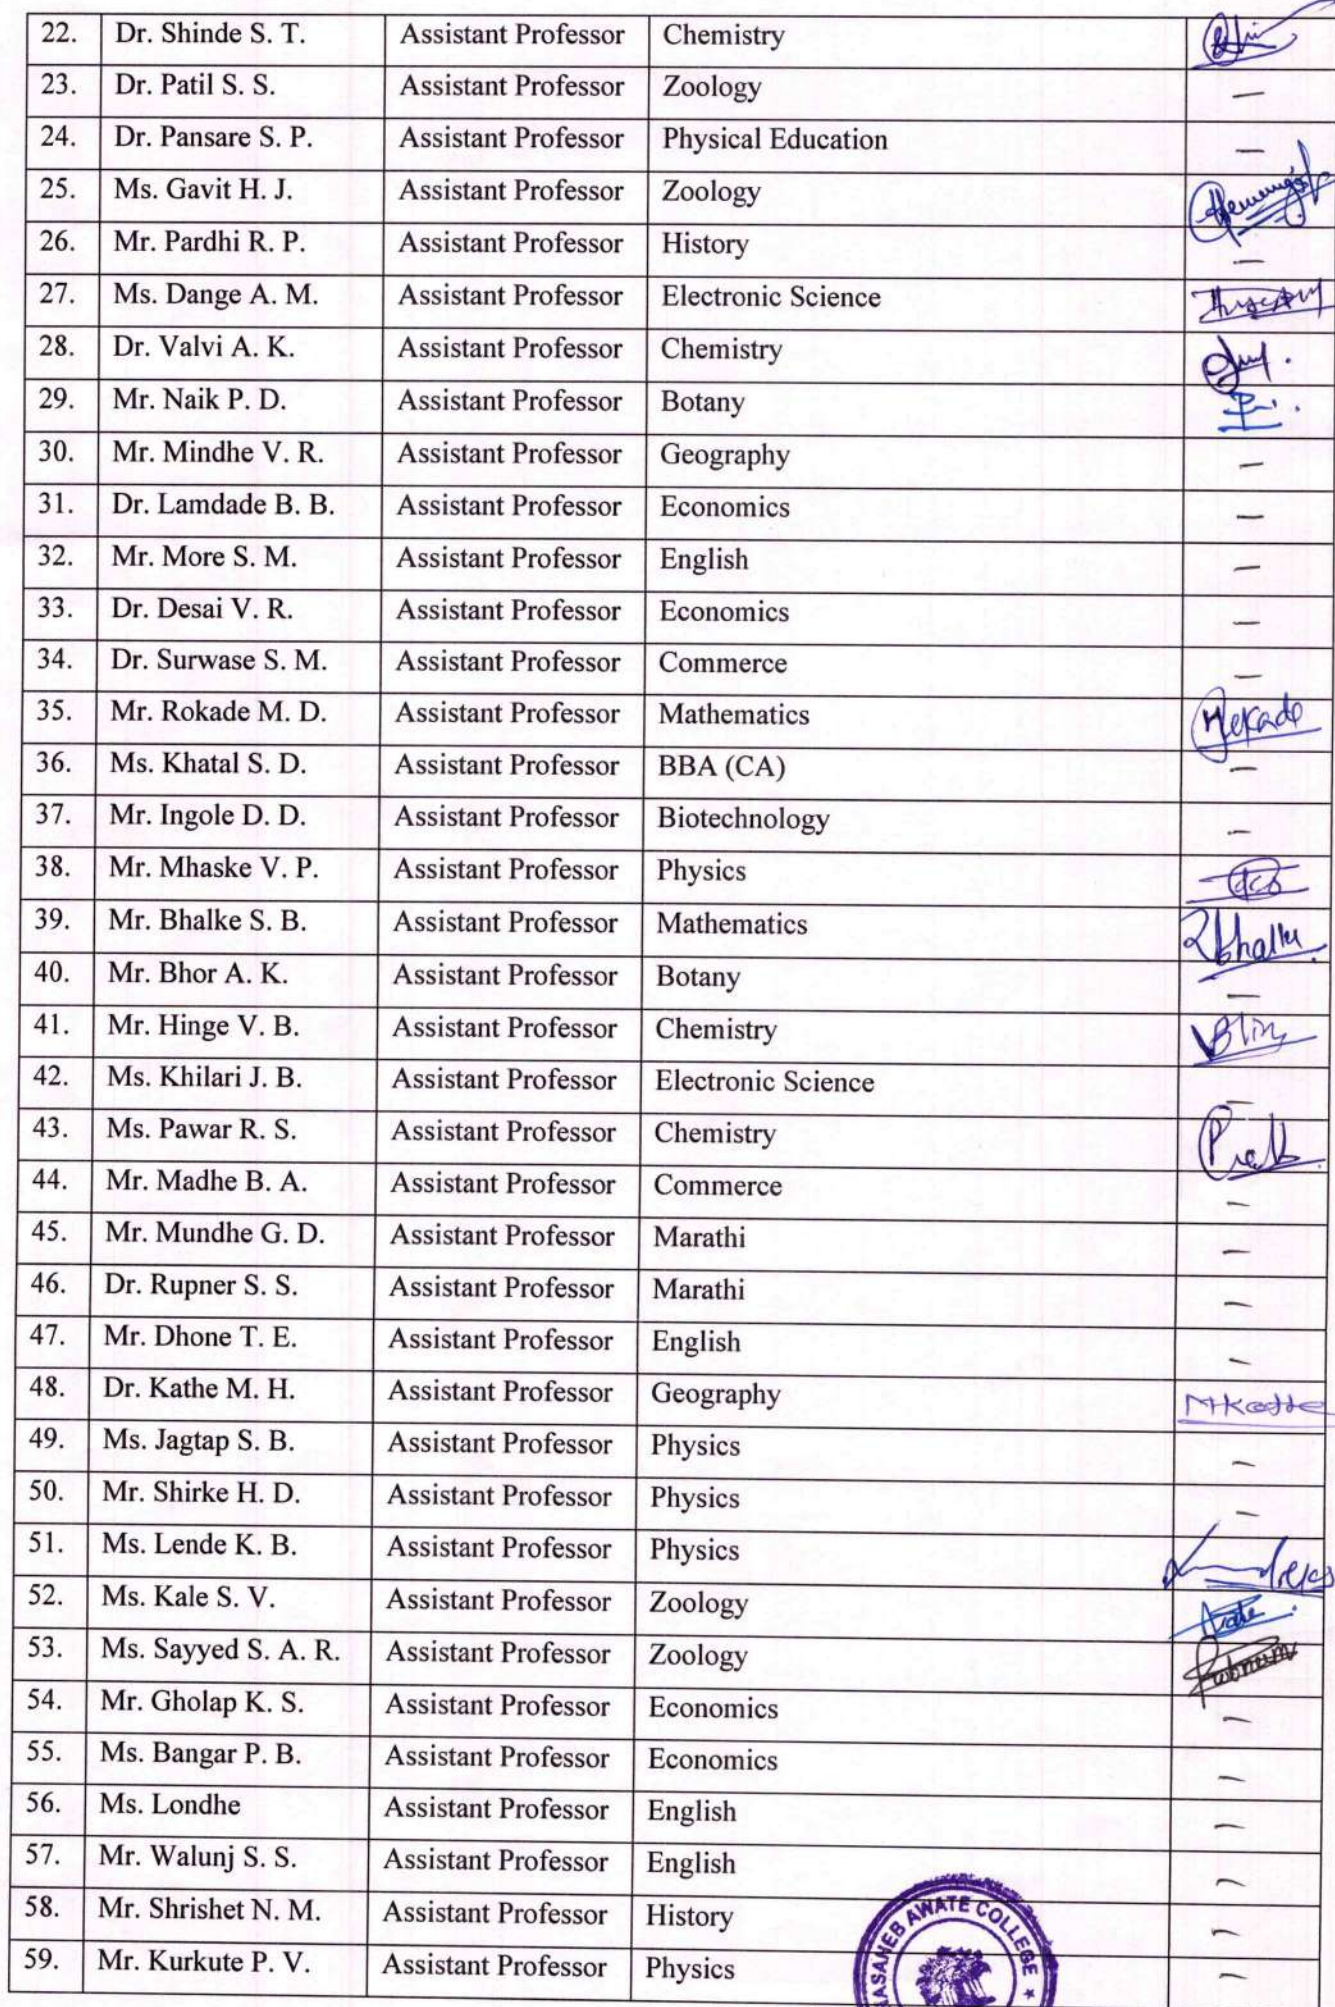 22. Dr. Shinde S. T. Assistant Professor Chemistry
23. Dr. Patil S. S. Assistant Professor Zoology —
24. Dr. Pansare S. P. Assistant Professor Physical Education —
25. Ms. Gavit H. J. Assistant Professor Zoology
26. Mr. Pardhi R. P. Assistant Professor History —
27. Ms. Dange A. M. Assistant Professor Electronic Science
28. Dr. Valvi A. K. Assistant Professor Chemistry
29. Mr. Naik P. D. Assistant Professor Botany
30. Mr. Mindhe V. R. Assistant Professor Geography —
31. Dr. Lamdade B. B. Assistant Professor Economics —
32. Mr. More S. M. Assistant Professor English —
33. Dr. Desai V. R. Assistant Professor Economics —
34. Dr. Surwase S. M. Assistant Professor Commerce —
35. Mr. Rokade M. D. Assistant Professor Mathematics
36. Ms. Khatal S. D. Assistant Professor BBA (CA) —
37. Mr. Ingole D. D. Assistant Professor Biotechnology —
38. Mr. Mhaske V. P. Assistant Professor Physics
39. Mr. Bhalke S. B. Assistant Professor Mathematics
40. Mr. Bhor A. K. Assistant Professor Botany —
41. Mr. Hinge V. B. Assistant Professor Chemistry
42. Ms. Khilari J. B. Assistant Professor Electronic Science —
43. Ms. Pawar R. S. Assistant Professor Chemistry
44. Mr. Madhe B. A. Assistant Professor Commerce —
45. Mr. Mundhe G. D. Assistant Professor Marathi —
46. Dr. Rupner S. S. Assistant Professor Marathi —
47. Mr. Dhone T. E. Assistant Professor English —
48. Dr. Kathe M. H. Assistant Professor Geography
49. Ms. Jagtap S. B. Assistant Professor Physics —
50. Mr. Shirke H. D. Assistant Professor Physics —
51. Ms. Lende K. B. Assistant Professor Physics
52. Ms. Kale S. V. Assistant Professor Zoology
53. Ms. Sayyed S. A. R. Assistant Professor Zoology
54. Mr. Gholap K. S. Assistant Professor Economics —
55. Ms. Bangar P. B. Assistant Professor Economics —
56. Ms. Londhe Assistant Professor English —
57. Mr. Walunj S. S. Assistant Professor English —
58. Mr. Shrishet N. M. Assistant Professor History —
59. Mr. Kurkute P. V. Assistant Professor Physics —
AWATE COLLEGE